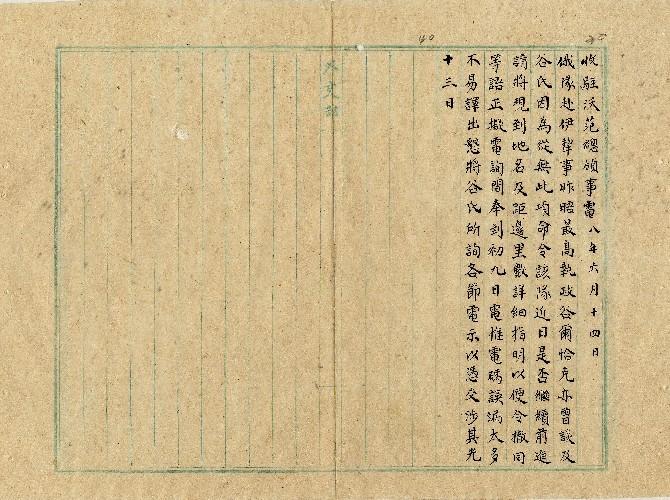 收駐沃范總領事電八年六月十四日
俄隊赴伊犂事昨晤最高執政谷爾恰克亦曾談及
谷氏因為從無此項命令該隊近日是否繼續前進
請將現到地名及距邊里數詳細指明以便令撤回
等語正擬電詢間奉到初九日電惟電碼誤漏太多
不易譯出懇將谷氏所詢各節電示以憑交涉其光
十三日